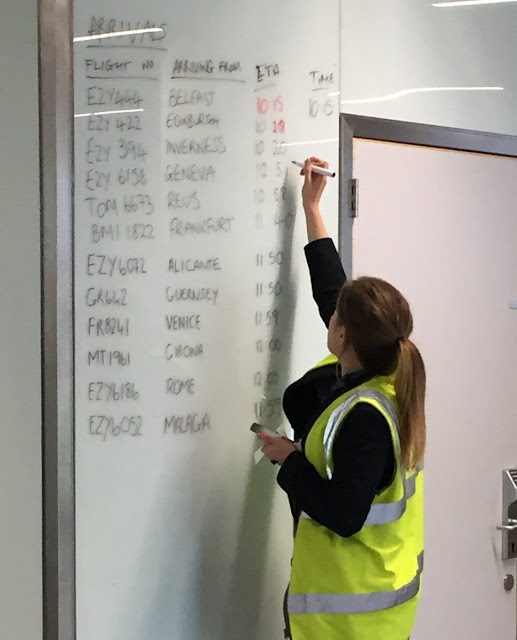 ARRIVALS
FLIGHT NO ARRIVING FROM ETA TIME
EZY444 BELFAST 10 15 10 15
EZY 422 EDINBURGH 10
EZY 394 INVERNESS 10 20
EZY 6158 GENEVA 10 5
TOM 6673 REUS 10
BMI 1822 FRANKFURT 11 40
EZY6072 ALICANTE 11 50
GR642 GUERNSEY 11 50
FR8241 VENICE 11 59
MT1961 GIRONA 12 00
EZY6186 ROME 12 05
EZY6052 MALAGA 11 59